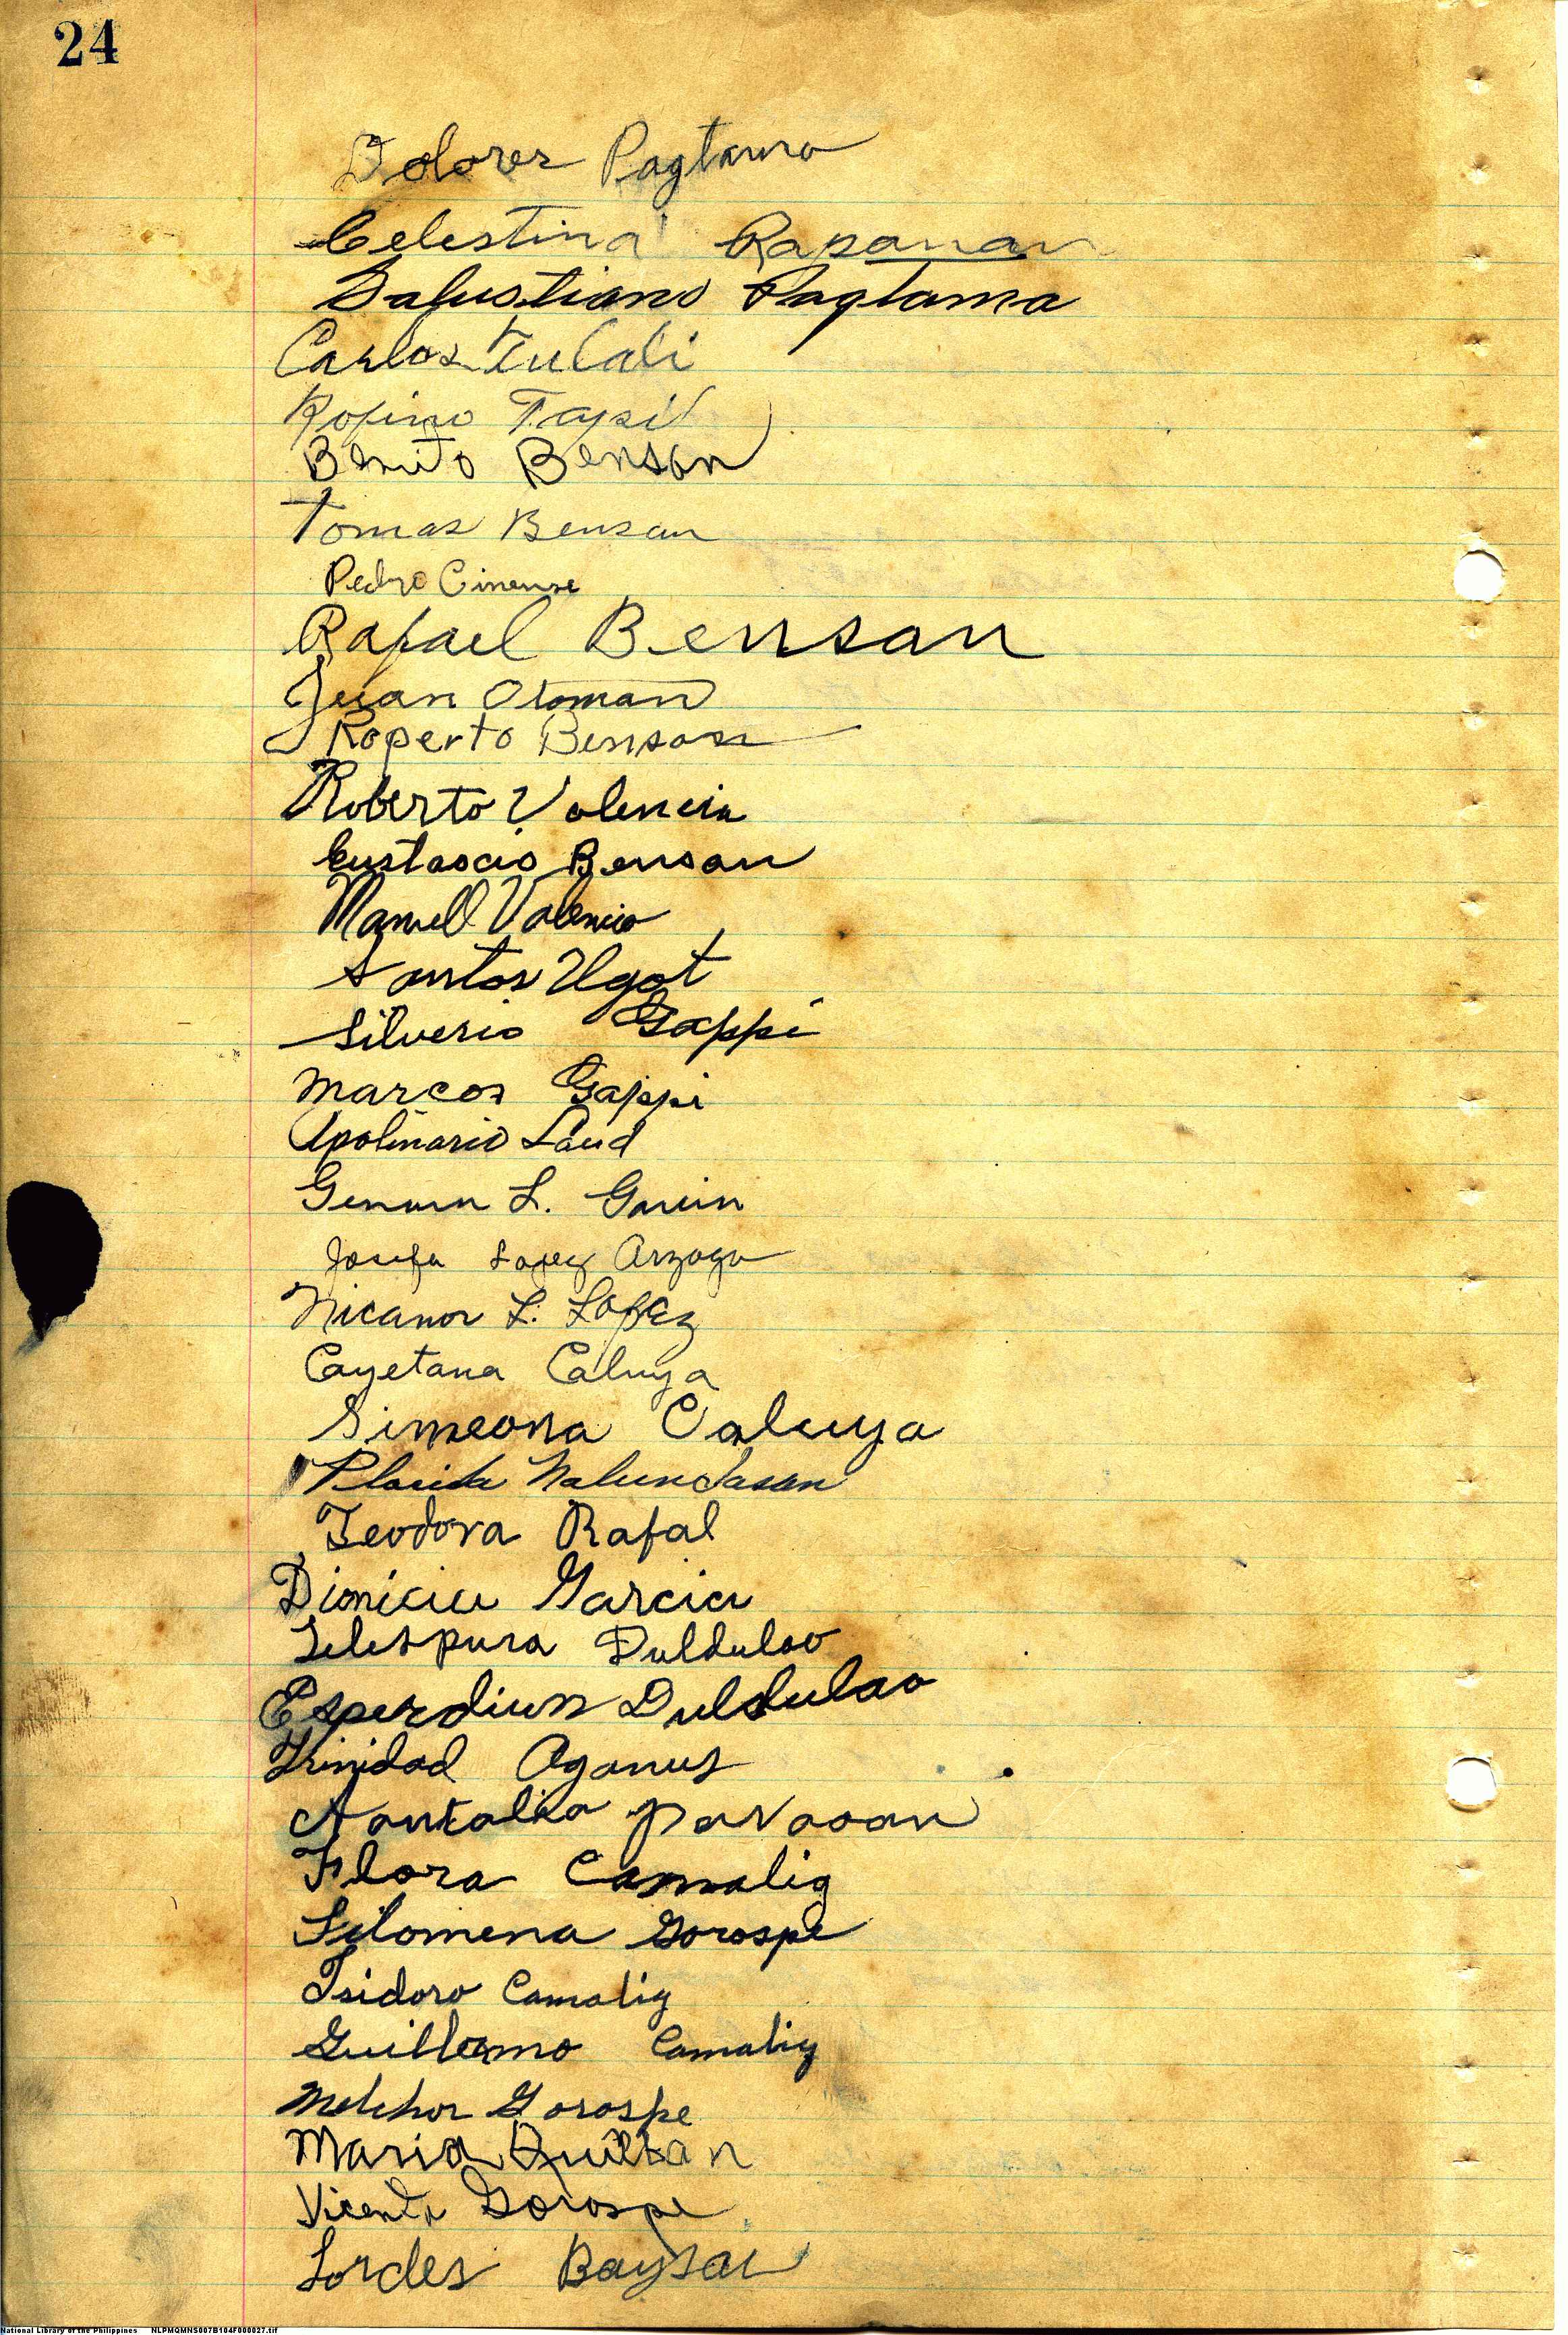 24
Dolores Pagtama
Celestina Rapanan
Salustiano Pagtama
Carlos Tulali
Rofino Tapil
Benito Benson
Tomas Bensan
Pedro Cinense
Rafael Bensan
Juan Otoman
Roperto Benson
Roberto Valencia
Eustacio Bensan
Manuell Valencia
Santos Ugot
Silverio Gappi
Marcos Gappi
Apolinario Laud
L.
Josefa Lopez
Nicanor L. Lopez
Cayetana Caluya
Simeona Caluya
Nalundasan
Teodora Rafal
Garcia
Duldulao
Duldulao
Trinidad Aganus
Flora Camalig
Filomena Gorospe
Isidoro Camalig
Guillermo Camalig
Melchor Gorospe
Maria
Vicenta Gorospe
Lordes Baysac
National Library of the Philippines NLPMQMNS007B104F000027.tif